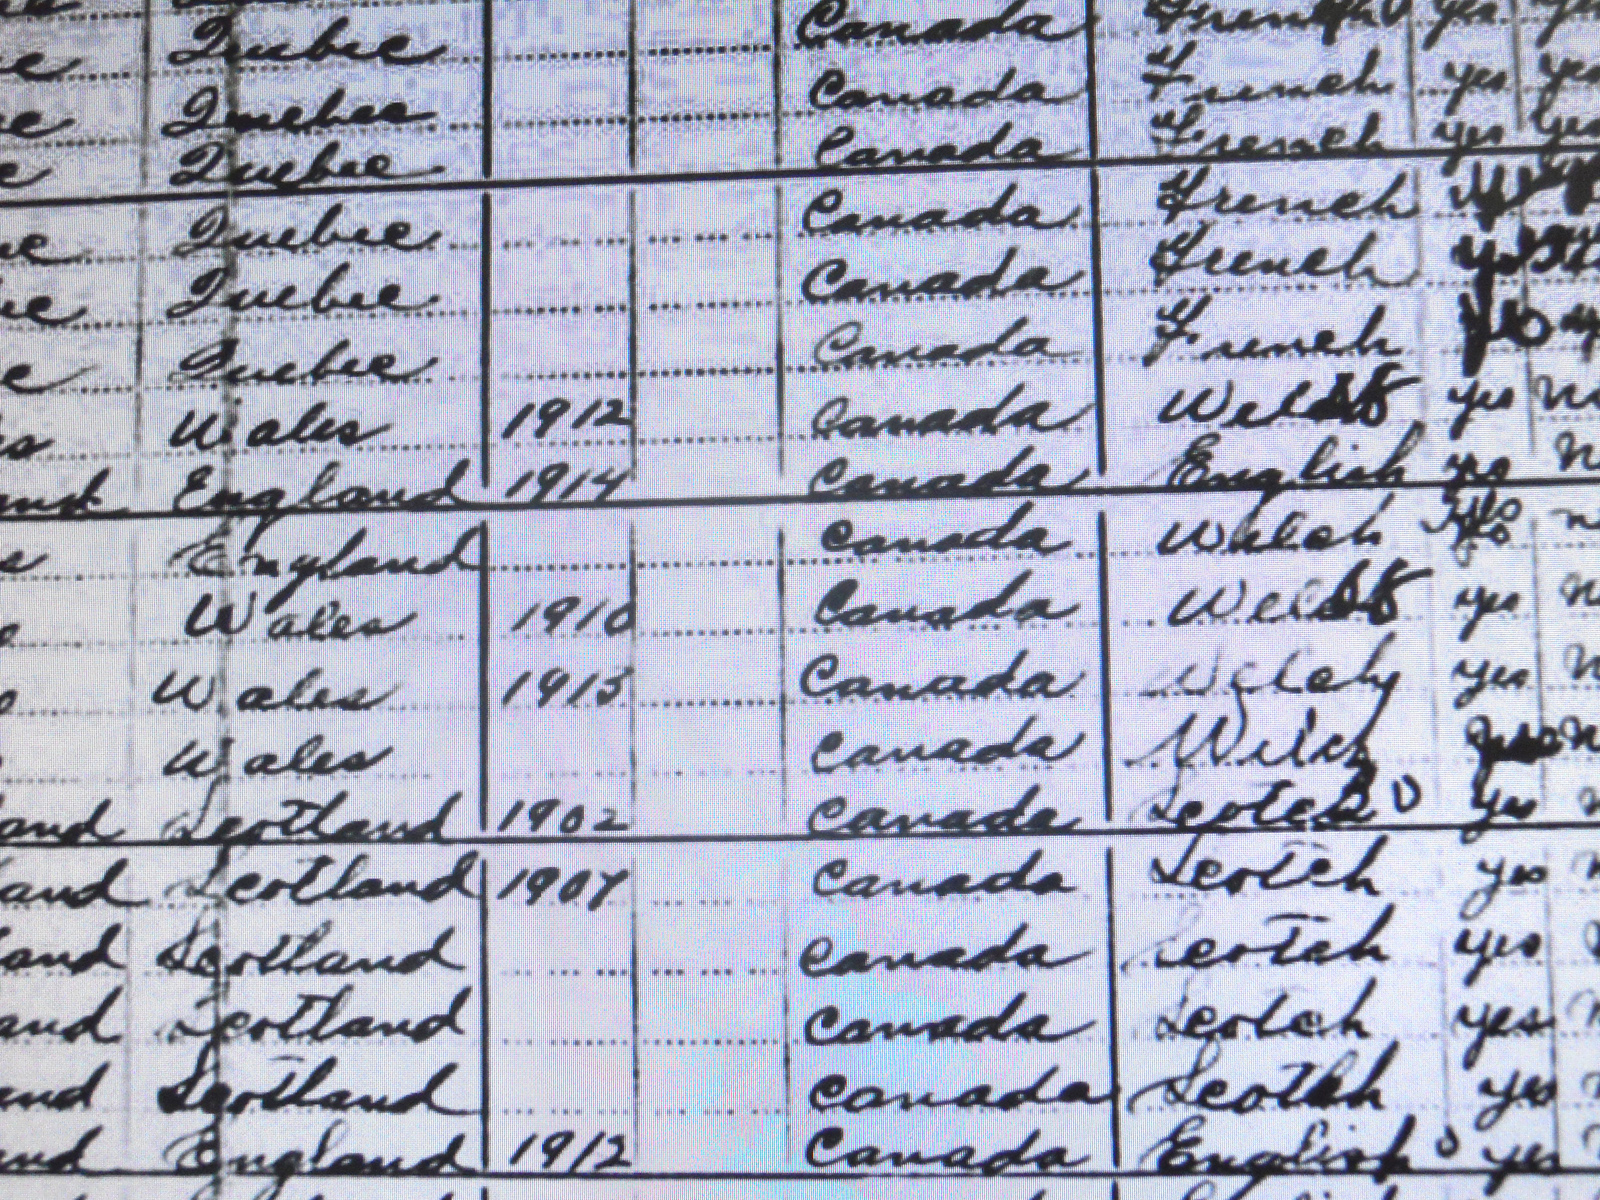 Quebec Canada French yes
Quebec Canada French yes yes
Quebec Canada French yes yes
Quebec Canada French
Quebec Canada French
Quebec Canada French yes
Wales 1912 Canada yes
England 1914 Canada English yes
England Canada Welch
Wales 1910 Canada yes
Wales 1913 Canada yes
Wales Canada
and Scotland 1902 Canada Scotch yes
and Scotland 1907 Canada Scotch yes
and Scotland Canada Scotch yes
and Scotland Canada Scotch yes
and Scotland Canada Scotch yes
and England 1912 Canada English yes